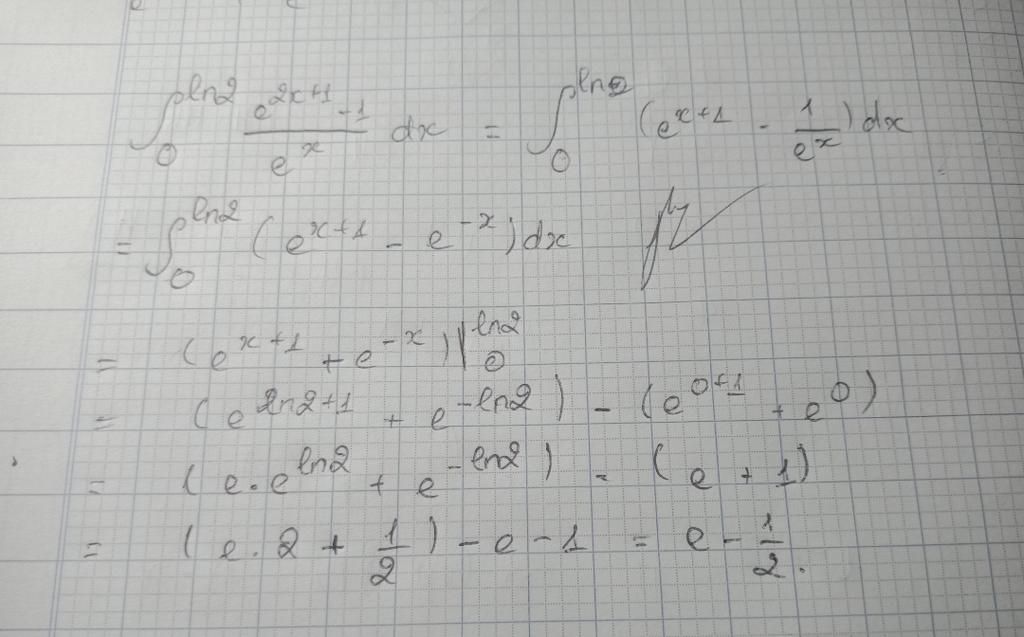 ∫₀^{ln2} (e^{2x+1} - 1)/(e^x) dx = ∫₀^{ln2} (e^{x+1} - 1/e^x) dx
= ∫₀^{ln2} (e^{x+1} - e^{-x}) dx
= (e^{x+1} + e^{-x}) |₀^{ln2}
= (e^{ln2+1} + e^{-ln2}) - (e^{0+1} + e^0)
= (e·e^{ln2} + e^{-ln2}) - (e + 1)
= (e·2 + 1/2) - e - 1 = e - 1/2.